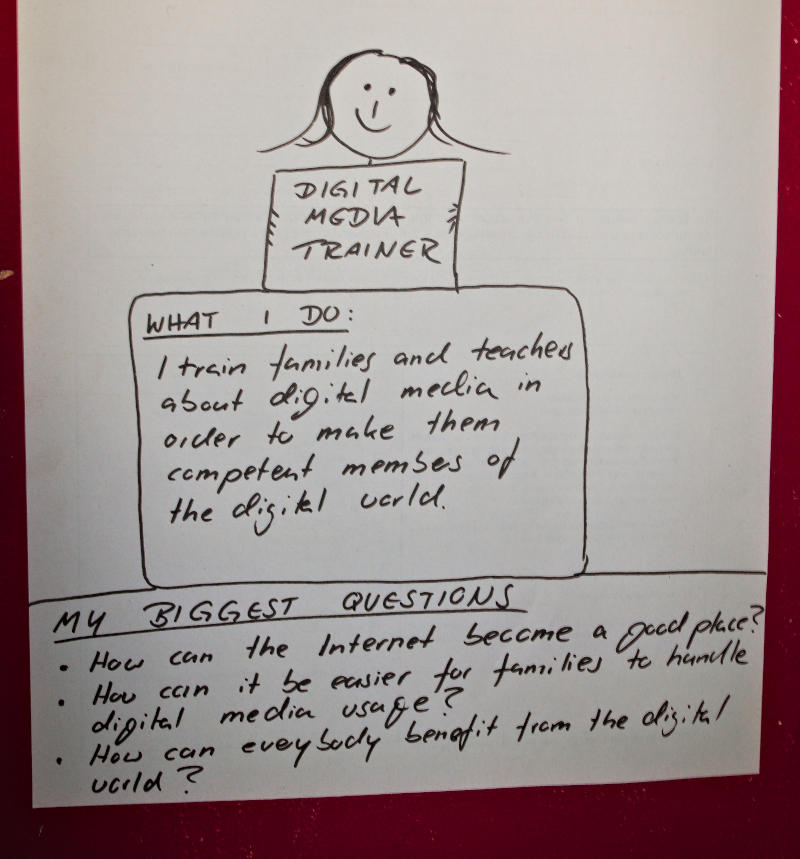 DIGITAL
MEDIA
TRAINER
WHAT I DO:
I train families and teachers
about digital media in
order to make them
competent members of
the digital world.
MY BIGGEST QUESTIONS
• How can the Internet become a good place?
• How can it be easier for families to handle
digital media usage?
• How can everybody benefit from the digital
world?